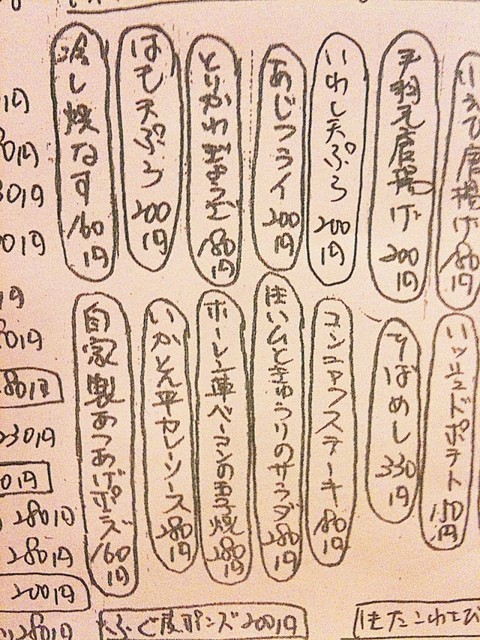 えび唐揚げ 180円
手羽元唐揚げ 200円
いわし天ぷら 200円
あじフライ 200円
とりかわぎょうざ 180円
はも天ぷら 200円
冷し焼なす 160円
ハッシュドポテト 150円
そばめし 330円
コンニャクステーキ 180円
生ハムときゅうりのサラダ 280円
ホーレン草ベーコンの玉子焼 280円
いかと天平セレーソース 280円
自家製あつあげポンズ 160円
280円
330円
280円
280円
200円
280円
ふぐ皮ポンズ 200円